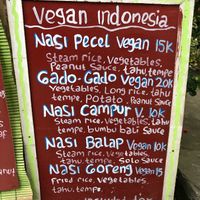 Vegan Indonesia
Nasi Pecel Vegan 15K
Steam rice, Vegetables,
Peanut Sauce, tahu tempe
Gado-Gado Vegan 20K
Vegetables, Long rice, tahu
tempe, Potato, Peanut Sauce
Nasi Campur V. 10K
Steam rice, Vegetables, tahu
tempe, bumbu bali Sauce
Nasi Balap Vegan 10K
Steam rice, Vegetables,
tahu, tempe, Solo Sauce
Nasi Goreng Vegan 15
Fried rice, Vegetables,
tahu, tempe